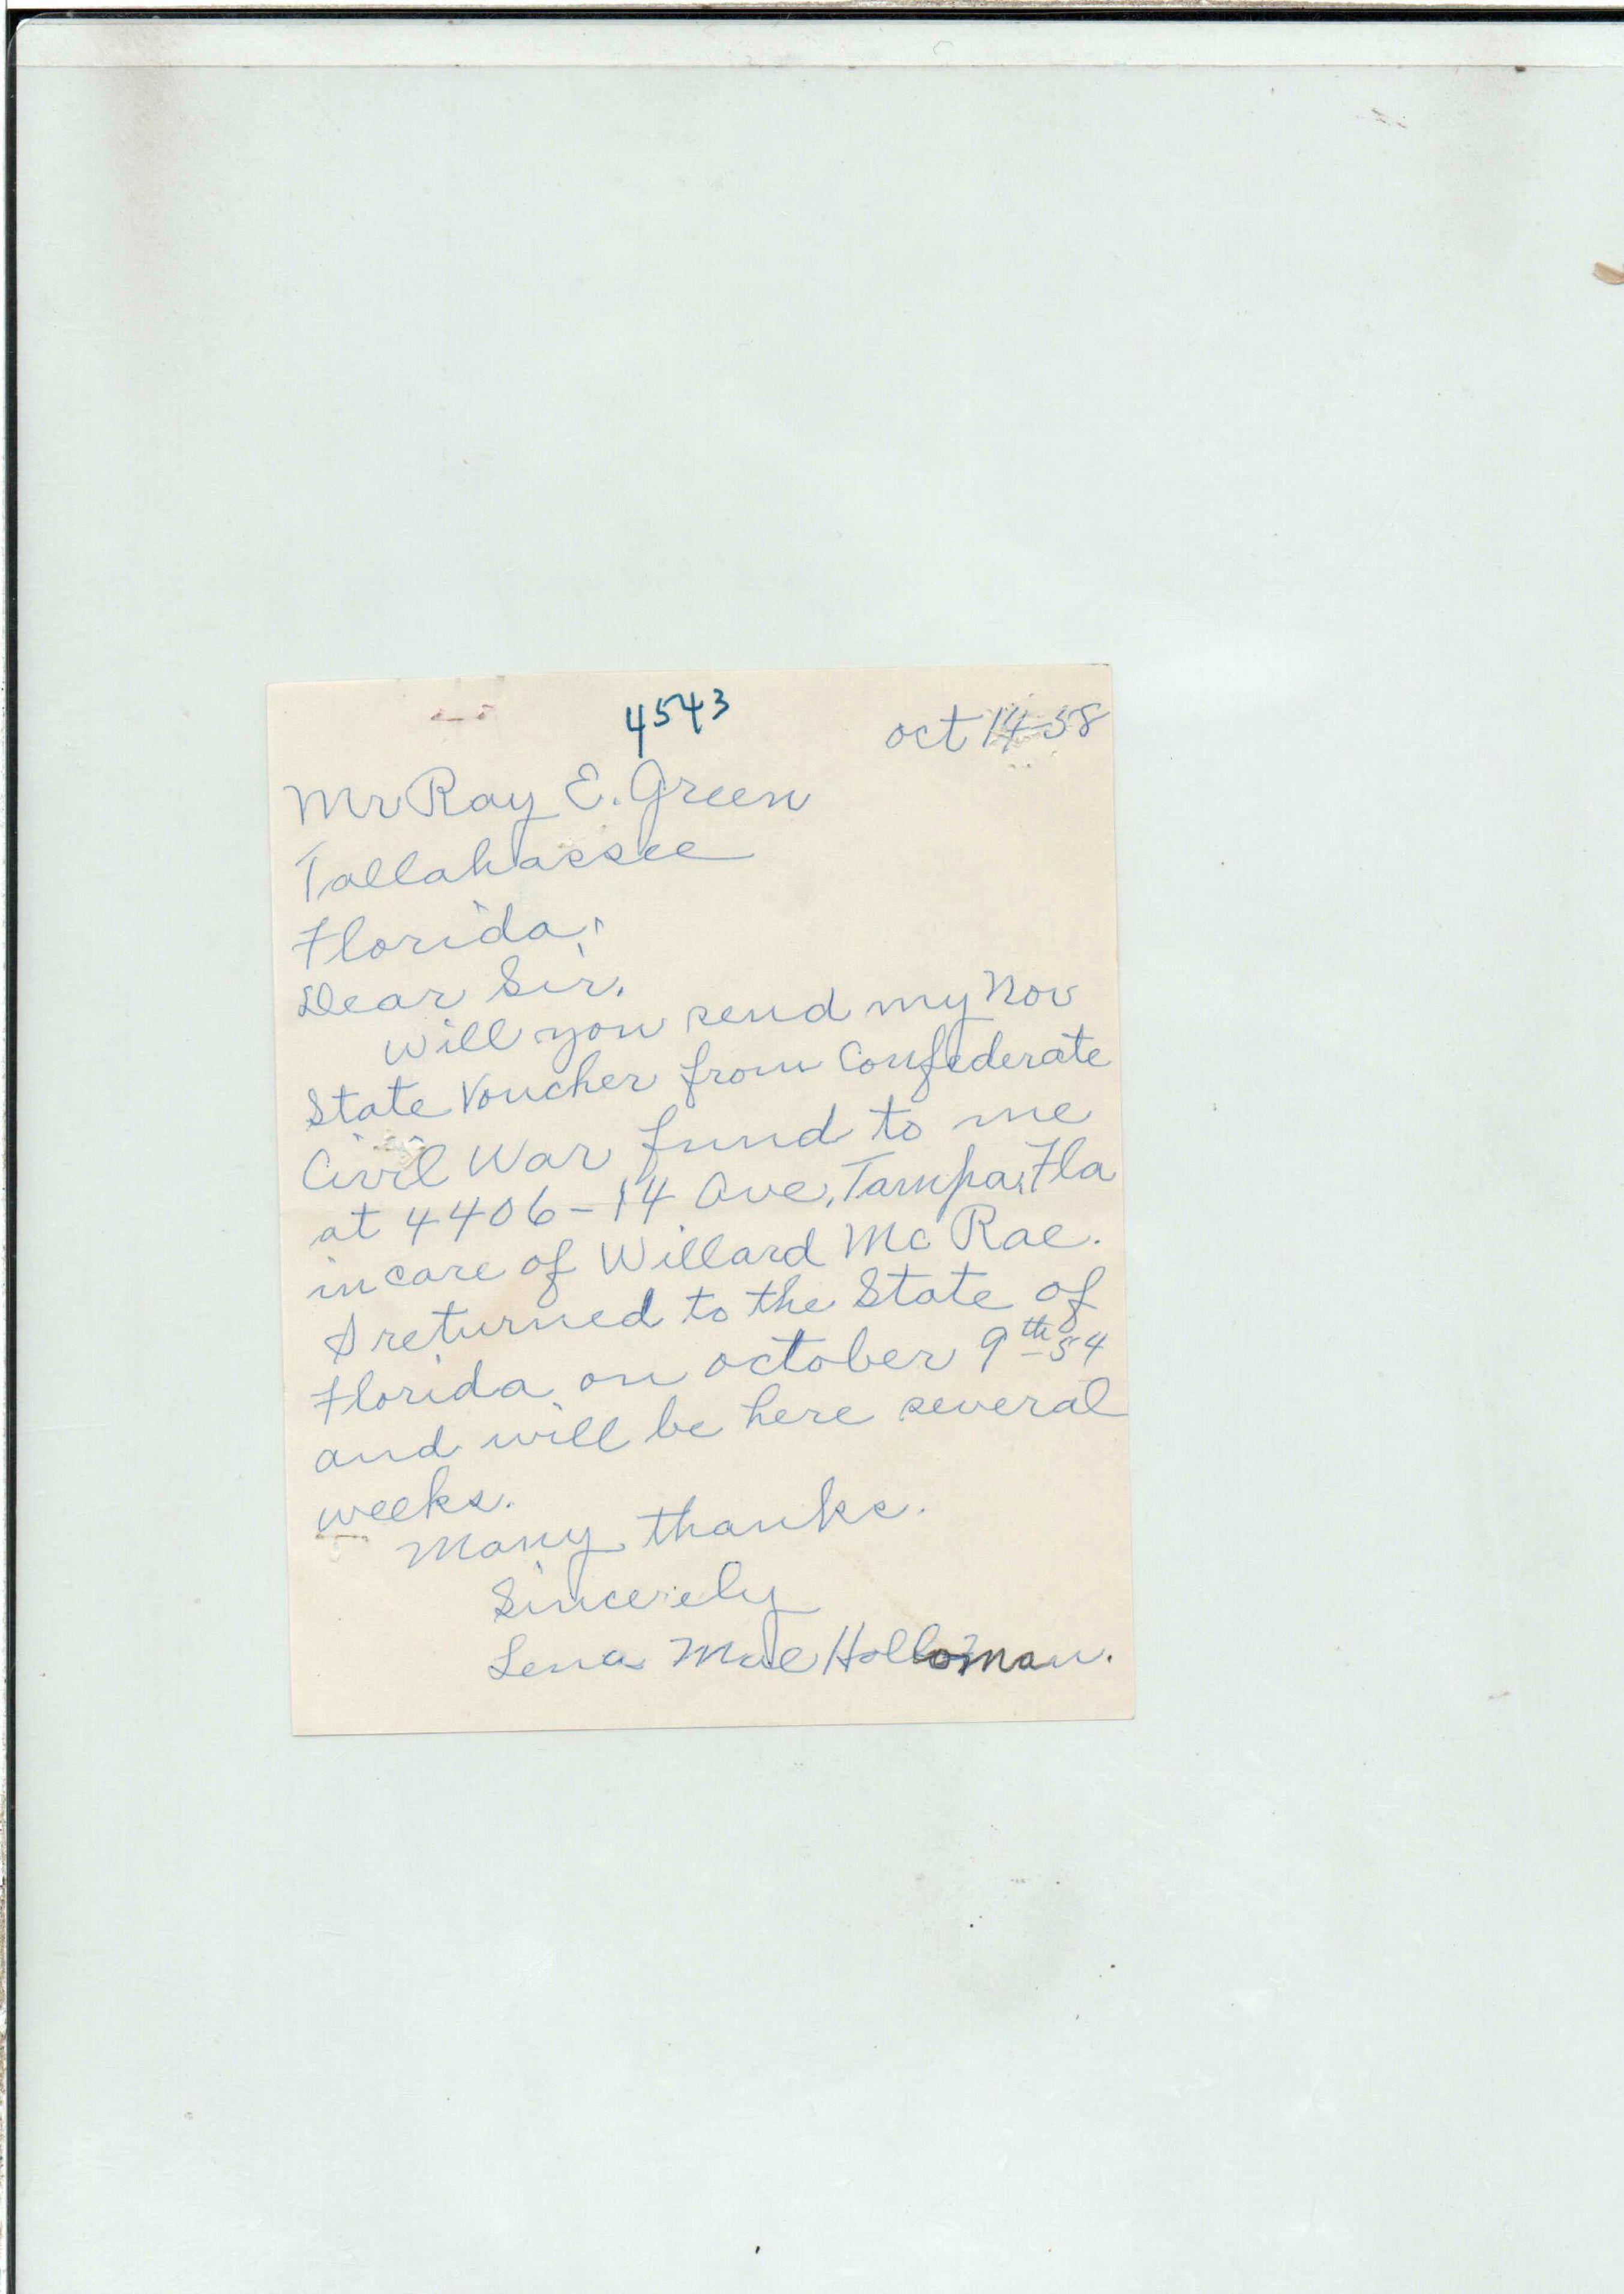 4543
Oct 14-58
Mr Ray E. Green
Tallahassee
Florida,
Dear Sir.
Will you send my Nov
State Voucher from Confederate
Civil War fund to me
at 4406-14 Ave, Tampa, Fla
in care of Willard Mc Rae.
I returned to the State of
Florida on October 9th-54
and will be here several
weeks.
Many thanks.
Sincerely
Lena Mae Holloman.